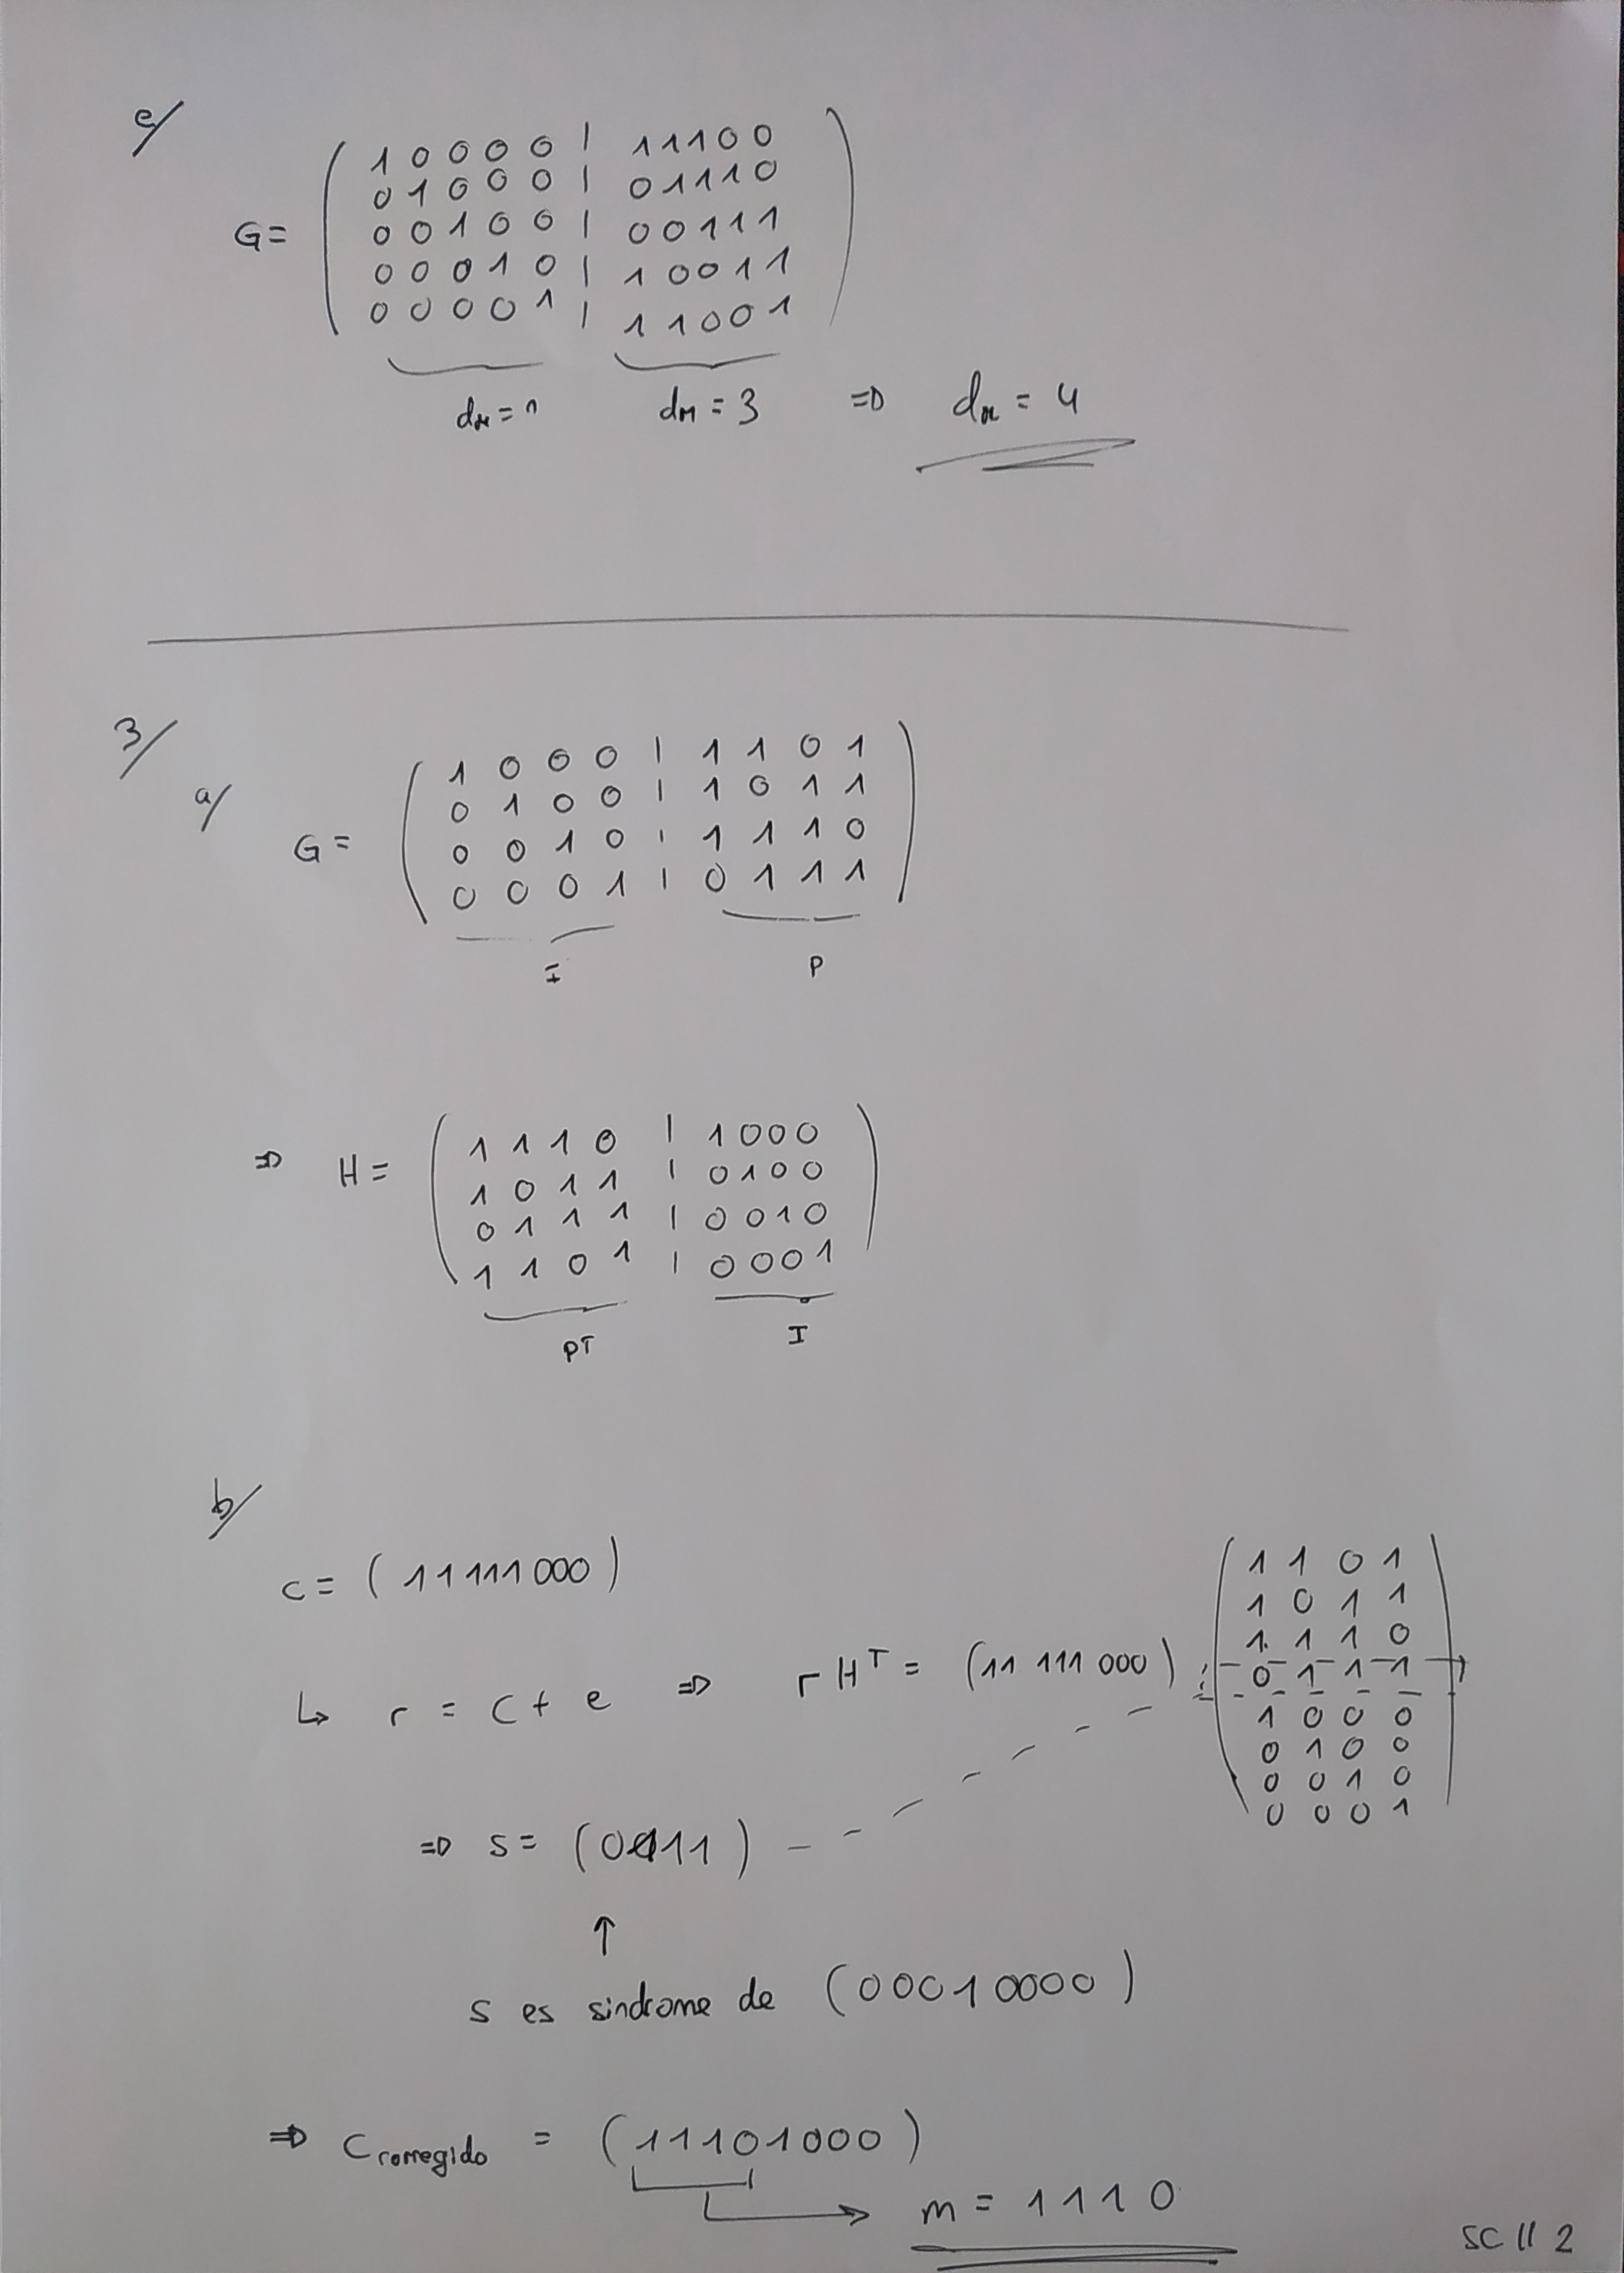 e/
G= ( 1 0 0 0 0 | 1 1 1 0 0
0 1 0 0 0 | 0 1 1 1 0
0 0 1 0 0 | 0 0 1 1 1
0 0 0 1 0 | 1 0 0 1 1
0 0 0 0 1 | 1 1 0 0 1 )
dm = 1 dm = 3 ⇒ dm = 4
3/
a/
G = ( 1 0 0 0 | 1 1 0 1
0 1 0 0 | 1 0 1 1
0 0 1 0 | 1 1 1 0
0 0 0 1 | 0 1 1 1 )
I P
⇒ H = ( 1 1 1 0 | 1 0 0 0
1 0 1 1 | 0 1 0 0
0 1 1 1 | 0 0 1 0
1 1 0 1 | 0 0 0 1 )
PT I
b/
c = (11111000)
↳ r = c + e ⇒ r H^T = (11 111 000) ( 1 1 0 1
1 0 1 1
1 1 1 0
0 1 1 1
1 0 0 0
0 1 0 0
0 0 1 0
0 0 0 1 )
⇒ s = (0111)
↑
s es sindrome de (00010000)
⇒ Ccorregido = (11101000)
m = 1110
SC // 2